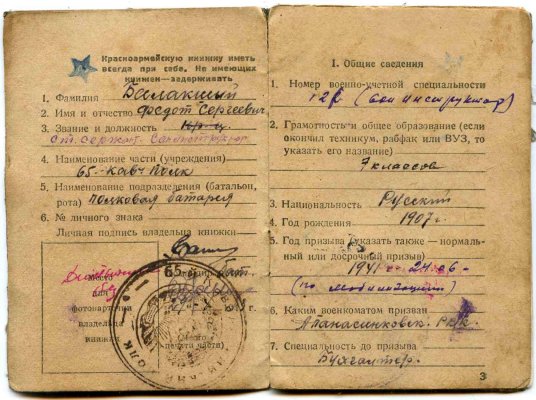 Красноармейскую книжку иметь
всегда при себе. Не имеющих
книжек—задерживать
1. Фамилия Балакший
2. Имя и отчество Федот Сергеевич
3. Звание и должность кр-ц
ст. сержант. Санинструктор
4. Наименование части (учреждения)
65-кав-полк
5. Наименование подразделения (батальон,
рота) полковая батарея
6. № личного знака
Личная подпись владельца книжки
Место
для
фотокарточки
владельца
книжки
65
(Место
печати части)
I. Общие сведения
1. Номер военно-учетной специальности
2. Грамотность и общее образование (если
окончил техникум, рабфак или ВУЗ, то
указать его название)
7 классов
3. Национальность Русский
4. Год рождения 1907 г.
5. Год призыва (указать также — нормаль-
ный или досрочный призыв)
1941 г. 24.06-
(по мобилизации)
6. Каким военкоматом призван
Апанасинковск. РВК.
7. Специальность до призыва
Бухгалтер.
3